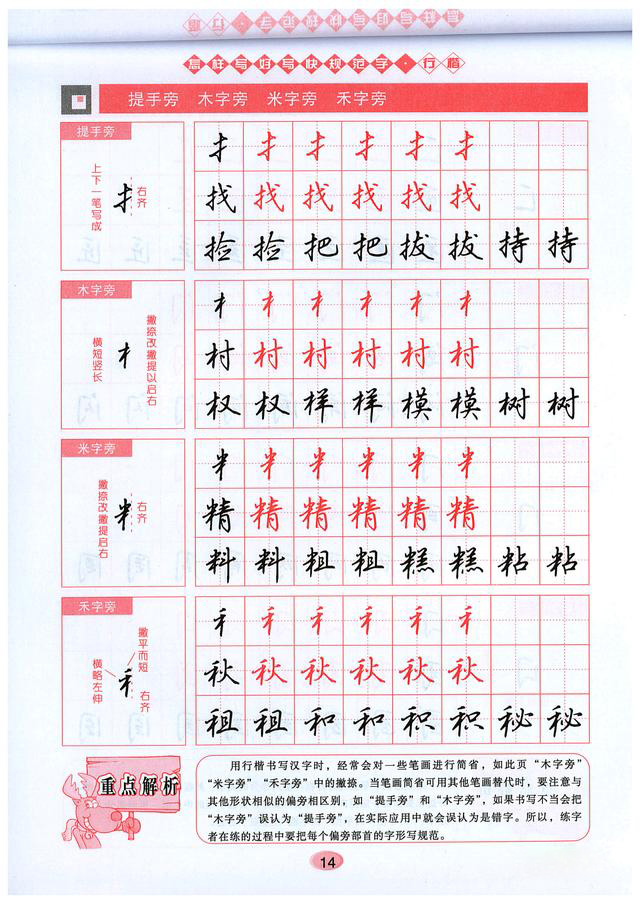 怎样写好写快规范字·行楷
提手旁 木字旁 米字旁 禾字旁
提手旁
上下一笔写成
扌
右齐
扌 扌 扌 扌 扌 扌
找 找 找 找 找 找
捡 捡 把 把 拔 拔 持 持
木字旁
横短竖长
木
撇捺改撇提以启右
木 木 木 木 木 木
村 村 村 村 村 村
权 权 样 样 模 模 树 树
米字旁
撇捺改撇提启右
米
右齐
米 米 米 米 米 米
精 精 精 精 精 精
料 料 粗 粗 糕 糕 粘 粘
禾字旁
撇平而短
横略左伸
禾
右齐
禾 禾 禾 禾 禾 禾
秋 秋 秋 秋 秋 秋
租 租 和 和 积 积 秘 秘
重点解析
用行楷书写汉字时，经常会对一些笔画进行简省，如此页“木字旁”
“米字旁”“禾字旁”中的撇捺。当笔画简省可用其他笔画替代时，要注意与
其他形状相似的偏旁相区别，如“提手旁”和“木字旁”，如果书写不当会把
“木字旁”误认为“提手旁”，在实际应用中就会误认为是错字。所以，练字
者在练的过程中要把每个偏旁部首的字形写规范。
14